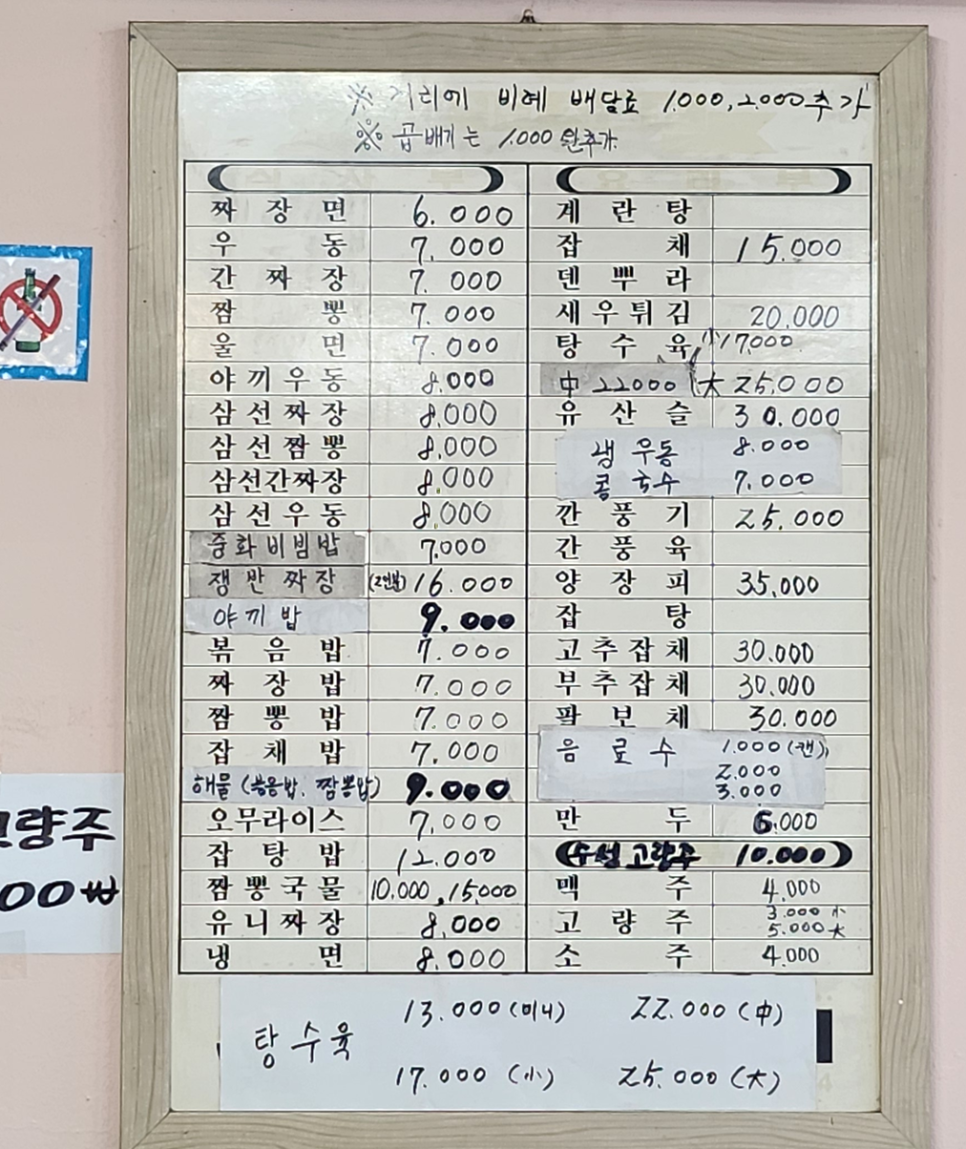 ※ 거리에 비례 배달료 1.000, 2.000 추가
※ 곱배기는 1.000 원추가
짜장면 6.000
우동 7.000
간짜장 7.000
짬뽕 7.000
울면 7.000
야끼우동 8.000
삼선짜장 8.000
삼선짬뽕 8.000
삼선간짜장 8.000
삼선우동 8.000
중화비빔밥 7.000
쟁반짜장 (2인분) 16.000
야끼밥 9.000
볶음밥 7.000
짜장밥 7.000
짬뽕밥 7.000
잡채밥 7.000
해물 (볶음밥. 짬뽕밥) 9.000
오무라이스 7.000
잡탕밥 12.000
짬뽕국물 10.000, 15.000
유니짜장 8.000
냉면 8.000
계란탕
잡채 15.000
덴뿌라
새우튀김 20.000
탕수육 小 17.000
中 22000 大 25.000
유산슬 30.000
냉우동 8.000
콩국수 7.000
깐풍기 25.000
간풍육
양장피 35.000
잡탕
고추잡채 30.000
부추잡채 30.000
팔보채 30.000
음료수 1.000 (캔)
2.000
3.000
만두 6.000
수성고량주 10.000
맥주 4.000
고량주 3.000 小
5.000 大
소주 4.000
탕수육 13.000 (미니) 22.000 (中)
17.000 (小) 25.000 (大)
량주
00₩